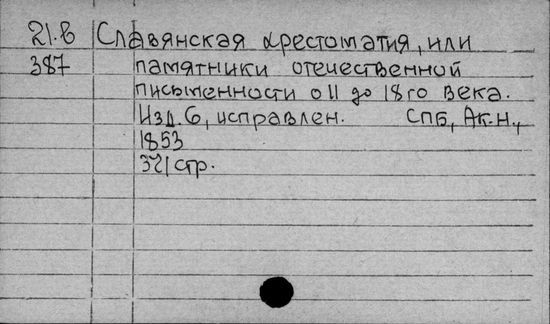 21.в Славянская хрестоматия, или
387 памятники отечественной
письменности о 11 до 18го века.
Изд. 6, исправлен. СПБ, Ак.Н.,
1853
321 стр.